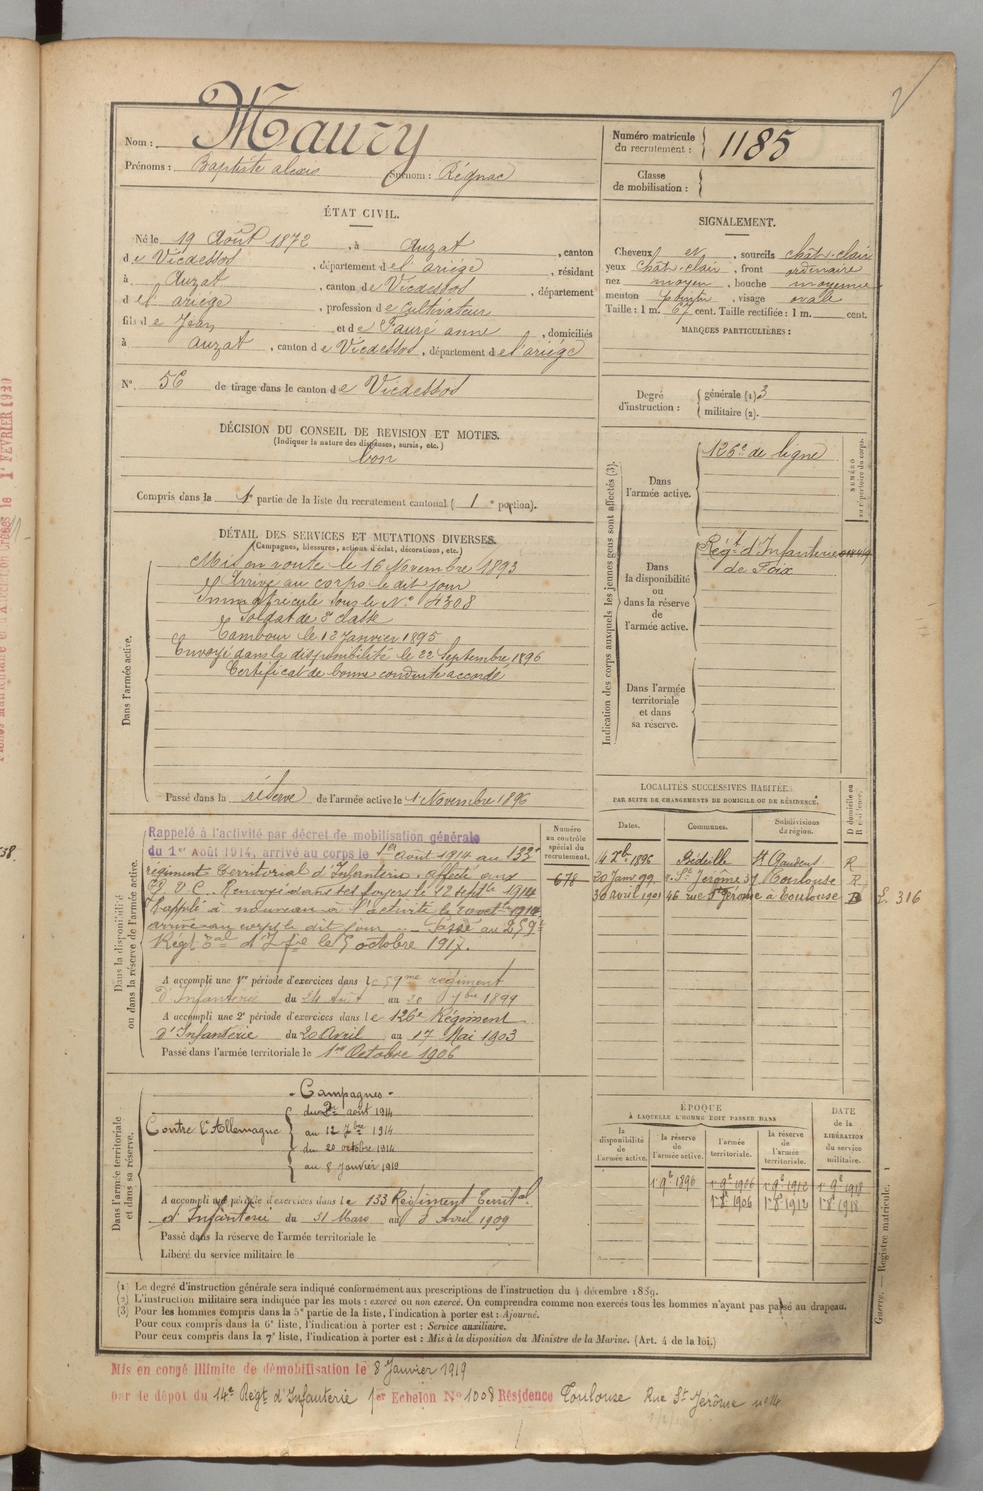 2
Nom : Maury
Prénoms : Baptiste alexis Surnom : Régnac
Numéro matricule du recrutement : 1185
Classe de mobilisation :
ÉTAT CIVIL.
Né le 19 Août 1872, à Auzat, canton
de Vicdessos, département de l'ariége, résidant
à Auzat, canton de Vicdessos, département
de l'ariége, profession de cultivateur
fils de Jean et de Faure anne, domiciliés
à Auzat, canton de Vicdessos, département de l'ariége
N° 56 de tirage dans le canton de Vicdessos
SIGNALEMENT.
Cheveux et, sourcils chât-clair
yeux chât-clair, front ordinaire
nez moyen, bouche moyenne
menton pointu, visage ovale
Taille : 1 m. 67 cent. Taille rectifiée : 1 m. cent.
MARQUES PARTICULIÈRES :
Degré d'instruction : générale (1) 3
militaire (2).
DÉCISION DU CONSEIL DE REVISION ET MOTIFS.
(Indiquer la nature des dispenses, sursis, etc.)
bon
Compris dans la 1e partie de la liste du recrutement cantonal ( 1 e portion).
DÉTAIL DES SERVICES ET MUTATIONS DIVERSES.
(Campagnes, blessures, actions d'éclat, décorations, etc.)
Dans l'armée active.
Mis en route le 16 Novembre 1893
Arrivé au corps le dit jour
Immatriculé sous le N° 4308
Soldat de 2e classe
Tambour le 12 Janvier 1895
Envoyé dans la disponibilité le 22 Septembre 1896
Certificat de bonne conduite accordé
Passé dans la réserve de l'armée active le 1 Novembre 1896
Indication des corps auxquels les jeunes gens sont affectés (3).
NUMÉRO au répertoire du corps.
Dans l'armée active.
126e de ligne
Dans la disponibilité ou dans la réserve de l'armée active.
Régt d'Infanterie
de Foix
Dans l'armée territoriale et dans sa réserve.
LOCALITÉS SUCCESSIVES HABITÉES
PAR SUITE DE CHANGEMENTS DE DOMICILE OU DE RÉSIDENCE.
Dates. Communes. Subdivisions de région. D domicile ou R résidence.
14 Xbre 1896 Bédeille St Gaudens R
20 Janv 99 r. St Jérôme 31 Toulouse R
30 avril 1901 46 rue St Jérome à Toulouse D
L. 316
Dans la disponibilité ou dans la réserve de l'armée active.
Numéro au contrôle spécial du recrutement.
678
Rappelé à l'activité par décret de mobilisation générale
du 1er Août 1914, arrivé au corps le 1er Août 1914 au 133e
régiment territorial d'Infanterie, affecté aux
G. V. C. Renvoyé dans ses foyers le 12 septbre 1914
Rappelé à nouveau à l'activité le 20 octbre 1914
arrivé au corps le dit jour Passé au 259e
Régt Tal d'Infie le 5 octobre 1917.
A accompli une 1re période d'exercices dans le 59me régiment
d'Infanterie du 24 Août au 20 7bre 1899
A accompli une 2e période d'exercices dans le 126e Régiment
d'Infanterie du 20 Avril au 17 Mai 1903
Passé dans l'armée territoriale le 1er Octobre 1906
Dans l'armée territoriale et dans sa réserve.
- Campagnes -
Contre l'Allemagne
du 2 août 1914
au 12 7bre 1914
du 20 octobre 1914
au 8 Janvier 1919
A accompli une période d'exercices dans le 133 Régiment Territal
d'Infanterie du 31 Mars au 8 Avril 1909
Passé dans la réserve de l'armée territoriale le
Libéré du service militaire le
ÉPOQUE
À LAQUELLE L'HOMME DOIT PASSER DANS
la disponibilité de l'armée active. la réserve de l'armée active. l'armée territoriale. la réserve de l'armée territoriale. DATE de la LIBÉRATION du service militaire.
1r 9e 1896 1r 9e 1906 1r 9e 1912 1r 9e 1918
1r 8e 1906 1r 8e 1912 1r 8e 1918
(1) Le degré d'instruction générale sera indiqué conformément aux prescriptions de l'instruction du 4 décembre 1889.
(2) L'instruction militaire sera indiquée par les mots : exercé ou non exercé. On comprendra comme non exercés tous les hommes n'ayant pas passé au drapeau.
(3) Pour les hommes compris dans la 5e partie de la liste, l'indication à porter est : Ajourné.
Pour ceux compris dans la 6e liste, l'indication à porter est : Service auxiliaire.
Pour ceux compris dans la 7e liste, l'indication à porter est : Mis à la disposition du Ministre de la Marine. (Art. 4 de la loi.)
Guerre. — Registre matricule. 1
Mis en congé illimité de démobilisation le 8 Janvier 1919
par le dépôt du 14e Régt d'Infanterie 1er Echelon N° 1008 Résidence Toulouse Rue St Jérôme n° 14